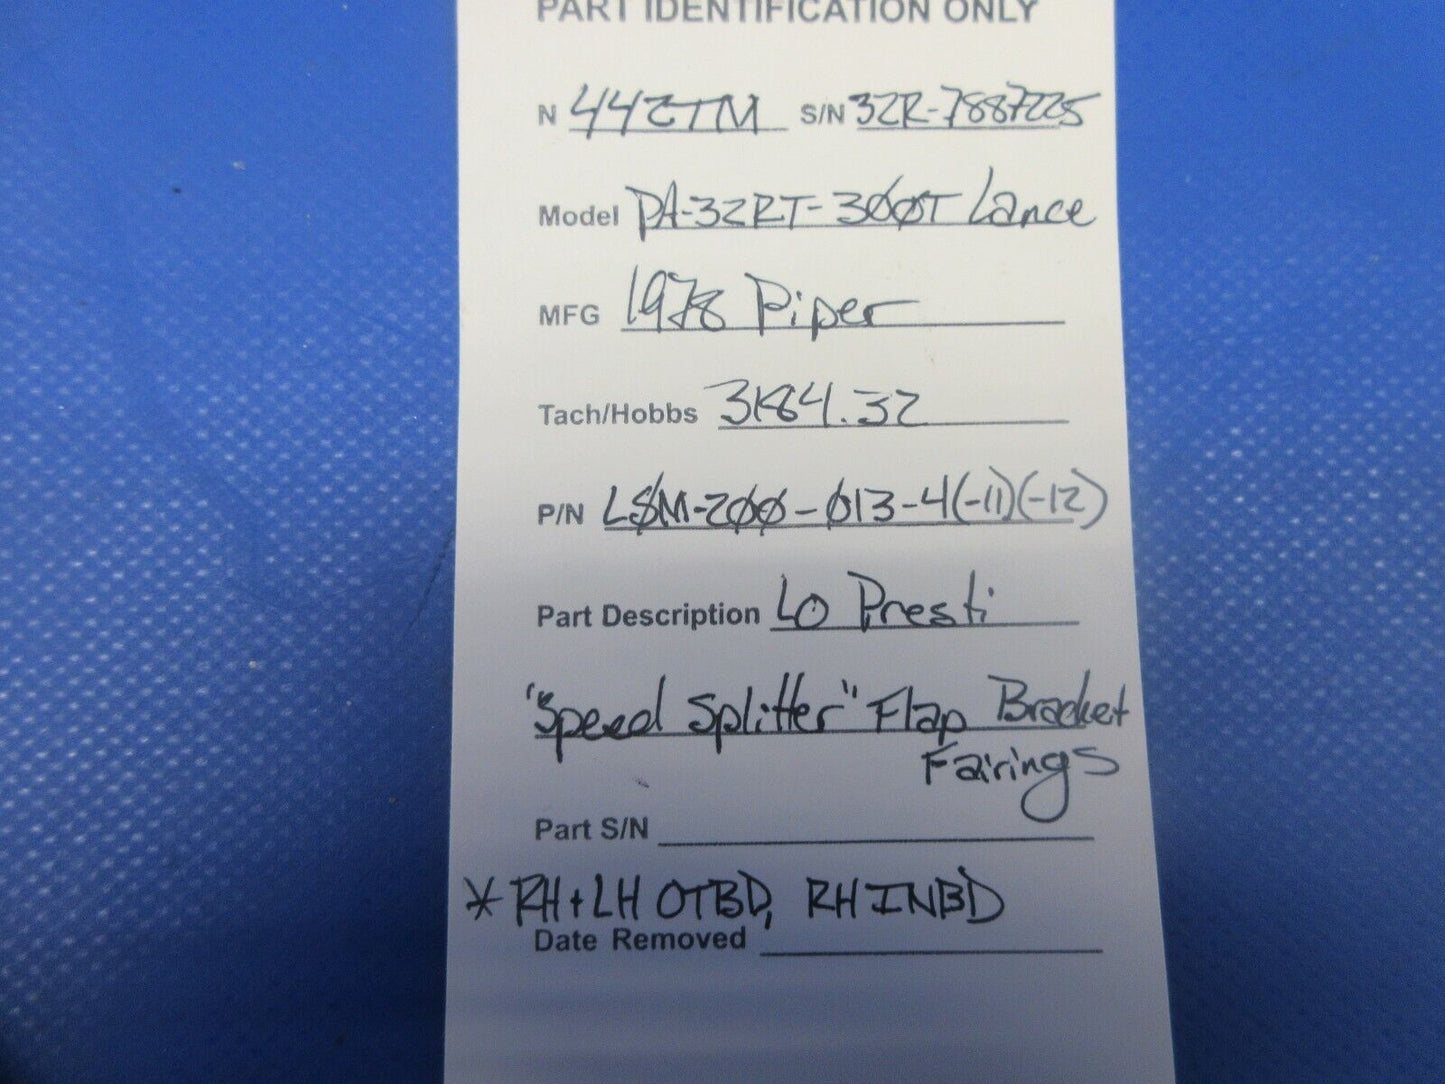 PART IDENTIFICATION ONLY
N 442TM S/N 32R-7887225
Model PA-32RT-300T Lance
MFG 1978 Piper
Tach/Hobbs 3184.32
P/N LSM-200-013-4(-11)(-12)
Part Description Lo Presti
"Speed Splitter" Flap Bracket
Fairings
Part S/N
* RH+LH OTBD, RH INBD
Date Removed